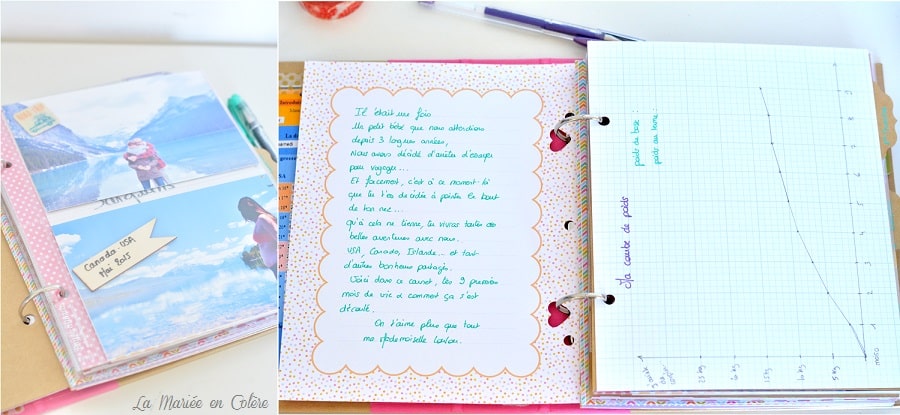 Canada USA
Mai 2015
La Mariée en Colère
Il était une fois
Un petit bébé que nous attendions
depuis 3 longues années,
Nous avons décidé d'arrêter d'essayer
pour voyager...
Et forcément, c'est à ce moment là
que tu t'es décidée à pointer le bout
de ton nez...
qu'à cela ne tienne, tu vivras toutes ces
belles aventures avec nous.
USA, Canada, Islande... et tant
d'autres bonheurs partagés.
Voici dans ce carnet, les 9 premiers
mois de vie & comment ça s'est
déroulé.
On t'aime plus que tout
ma Mademoiselle Loulou.
Ma courbe de poids
poids de base :
poids au terme :
mois
1
2
5 kg